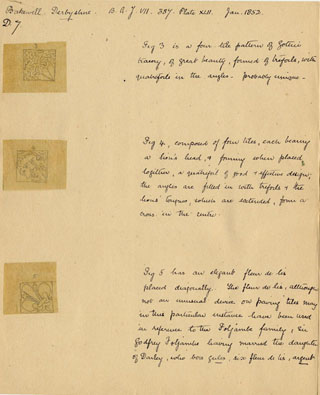 Bakewell. Derbyshire. B. A. J VII. 387. Plate XLII. Jan. 1852.
D 7.
Fig 3 is a four tile pattern of Gothic
tracery, of great beauty, formed of trefoils, with
quatrefoils in the angles. Probably unique.
Fig 4, composed of four tiles, each bearing
a lion's head, & forming when placed
together, a quatrefoil of good & effective design;
the angles are filled in with trefoils & the
lions tongues, which are extended, form a
cross in the centre.
Fig 5 has an elegant fleur de lis
placed diagonally. The fleur de lis, although
not an unusual device on paving tiles may
in this particular instance have been used
in reference to the Foljambe family; Sir
Godfrey Foljambe having married the daughter
of Darley, who bore gules, six fleur de lis, argent